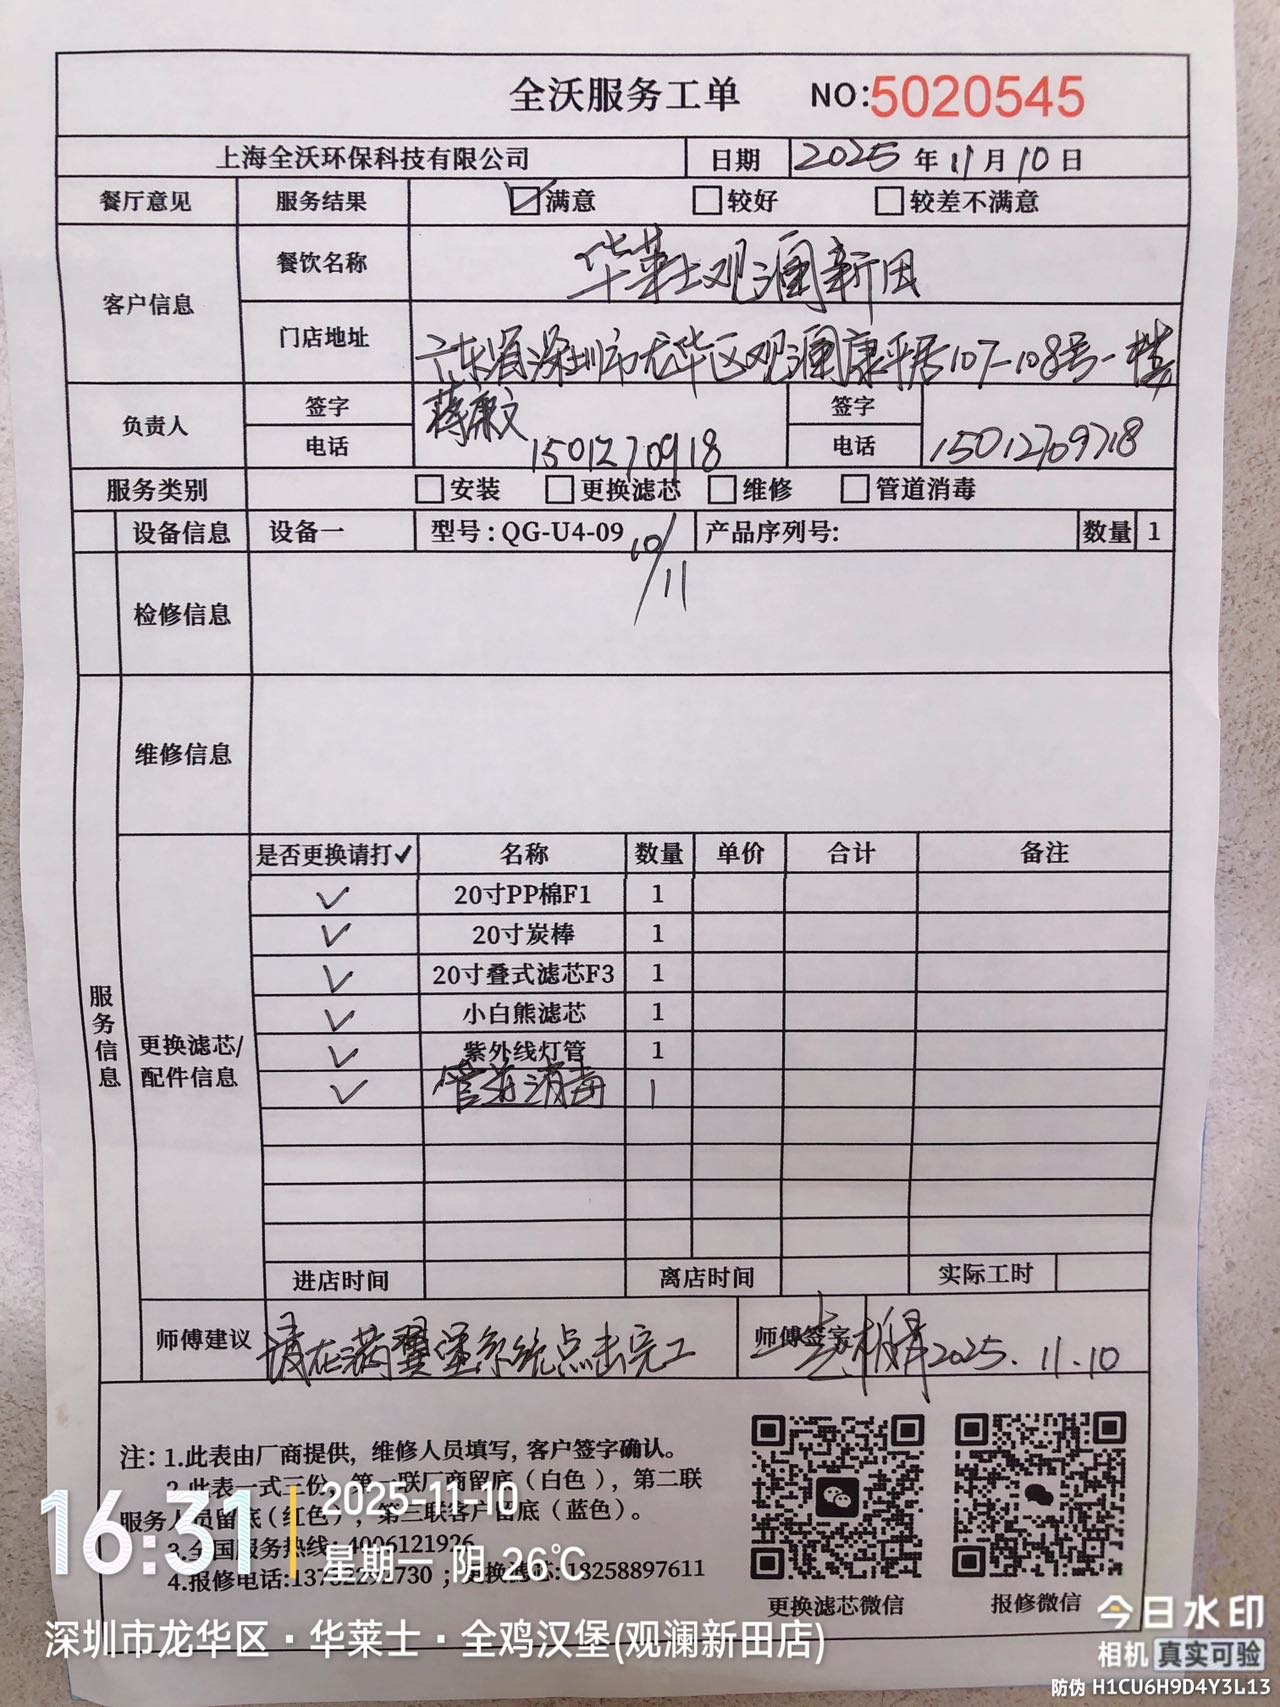 全沃服务工单 NO:5020545
上海全沃环保科技有限公司 日期 2025年11月10日
餐厅意见 服务结果 ☑满意 □较好 □较差不满意
客户信息 餐饮名称 华莱士观澜新田
门店地址 广东省深圳市龙华区观澜康平居107-108号一楼
负责人 签字 蒋 签字
电话 15012709718 电话 15012709718
服务类别 □安装 □更换滤芯 □维修 □管道消毒
设备信息 设备一 型号:QG-U4-09 产品序列号: 数量 1
10/11
检修信息
维修信息
服务信息
更换滤芯/配件信息
是否更换请打✓ 名称 数量 单价 合计 备注
✓ 20寸PP棉F1 1
✓ 20寸炭棒 1
✓ 20寸叠式滤芯F3 1
✓ 小白熊滤芯 1
✓ 紫外线灯管 1
✓ 管道消毒 1
进店时间 离店时间 实际工时
师傅建议 请在满翼堡系统点击完工 师傅签字 2025.11.10
注:1.此表由厂商提供,维修人员填写,客户签字确认。
2.此表一式三份,第一联厂商留底(白色),第二联
服务人员留底(红色),第三联客户留底(蓝色)。
3.全国服务热线:4006121926
4.报修电话: ;更换滤芯:18258897611
更换滤芯微信 报修微信
16:31 2025-11-10
星期一 阴 26℃
深圳市龙华区·华莱士·全鸡汉堡(观澜新田店)
今日水印
相机 真实可验
防伪 H1CU6H9D4Y3L13